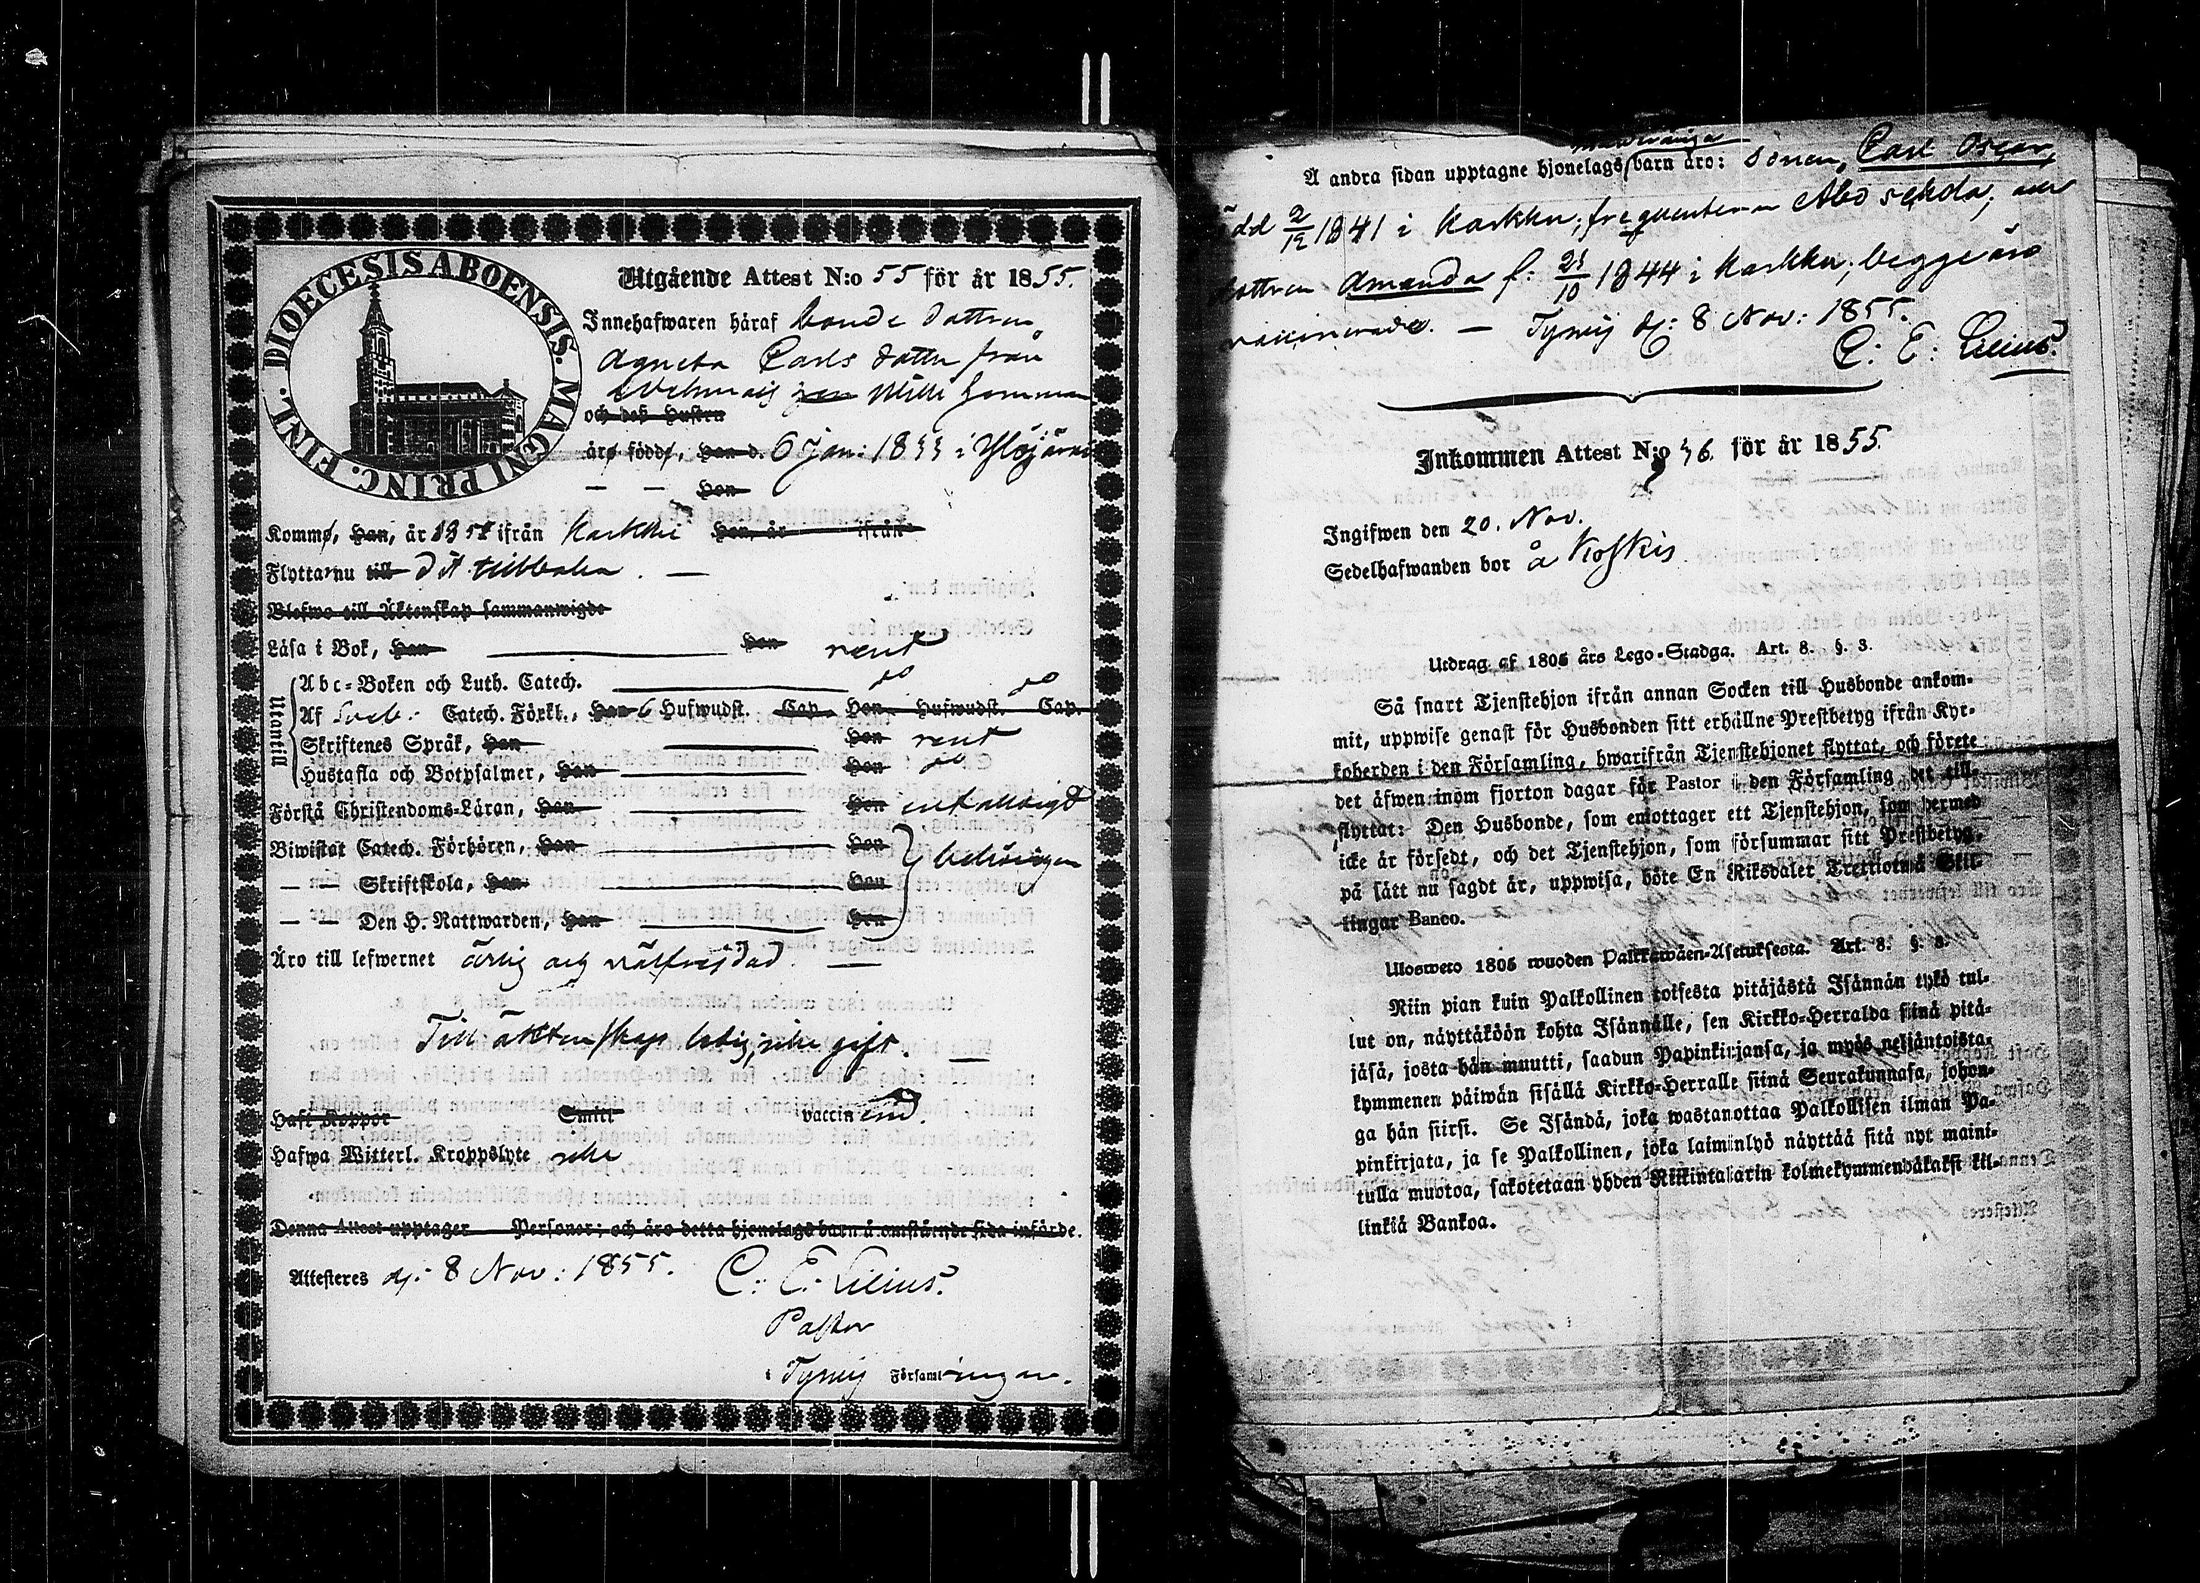 DIOECESIS ABOENSIS. MAGNI PRINC. FINL.
Utgående Attest N:o 55 för år 1855.
Innehafwaren häraf bonde dottren
Agneta Carls dotter från
och deß hustru
äro födde, han d. 6 Jan: 1833 i Ylöjärvi
— — Hon
Komme, Han, år 1851 ifrån Karkku Hon, år ifrån
Flyttar nu till dit tillbaka. —
Blefwo till Äktenskap sammanwigde
Läsa i Bok, Han Hon rent
Utantill
Abc-Boken och Luth. Catech. do do
Af Sveb: Catech. Förkl., Han 6 Hufwudst. Cap. Hon Hufwudst. Cap.
Skriftenes Språk, Han Hon rent
Hustafla och Botpsalmer, Han Hon do
Förstå Christendoms-Läran, Han Hon enfaldigt
Biwistat Catech. Förhören, Han Hon
behörigen
— — Skriftskola, Han Hon
— — Den H. Nattwarden, Han Hon
Äro till lefwernet ärlig och välfrejdad. —
Till äktenskap ledig, icke gift. —
Haft Koppor Smitt vaccinerad.
Hafwa Witterl. Kroppslyte icke
Denna Attest upptager Personer; och äro detta hjonelags barn å omstående sida införde.
Attesteres d: 8 Nov: 1855. C: E: Lilius.
Pastor
i Församlingen.
Å andra sidan upptagne hjonelags barn äro: sonen, Carl Oscar,
född 2/12 1841 i Karkku, frequenterar Åbo schola, och
dottren Amanda f: 1844 i Karkku, begge äro
vaccinerade. — d: 8 Nov: 1855.
C: E: Lilius.
Inkommen Attest N:o 36. för år 1855.
Ingifwen den 20. Nov.
Sedelhafwanden bor å Koskis
Utdrag af 1805 års Lego-Stadga. Art. 8. §. 3.
Så snart Tjenstehjon ifrån annan Socken till Husbonde ankom-
mit, uppwise genast för Husbonden sitt erhållne Prestbetyg ifrån Kyr-
koherden i den Församling, hwarifrån Tjenstehjonet flyttat, och förete
det äfwen inom fjorton dagar för Pastor i den Församling det till-
flyttat: Den Husbonde, som emottager ett Tjenstehjon, som dermed
icke är försedt, och det Tjenstehjon, som försummar sitt Prestbetyg,
på sätt nu sagdt är, uppwisa, böte En Riksdaler Trettiotwå Skil-
lingar Banco.
Ulosweto 1805 wuoden Palkkawäen-Asetuksesta. Art. 8. §. 3.
Niin pian kuin Palkollinen toisesta pitäjästä Isännän tykö tul-
lut on, näyttäköön kohta Isännälle, sen Kirkko-Herralda siinä pitä-
jäsä, josta hän muutti, saadun Papinkirjansa, ja myös neljäntoista-
kymmenen päiwän sisällä Kirkko-Herralle siinä Seurakunnasa, johon-
ga hän siirsi. Se Isändä, joka wastanottaa Palkollisen ilman Pa-
pinkirjata, ja se Palkollinen, joka laiminlyö näyttää sitä nyt maini-
tulla muotoa, sakotetaan yhden Riikintalarin kolmekymmendäkaksi kil-
linkiä Bankoa.